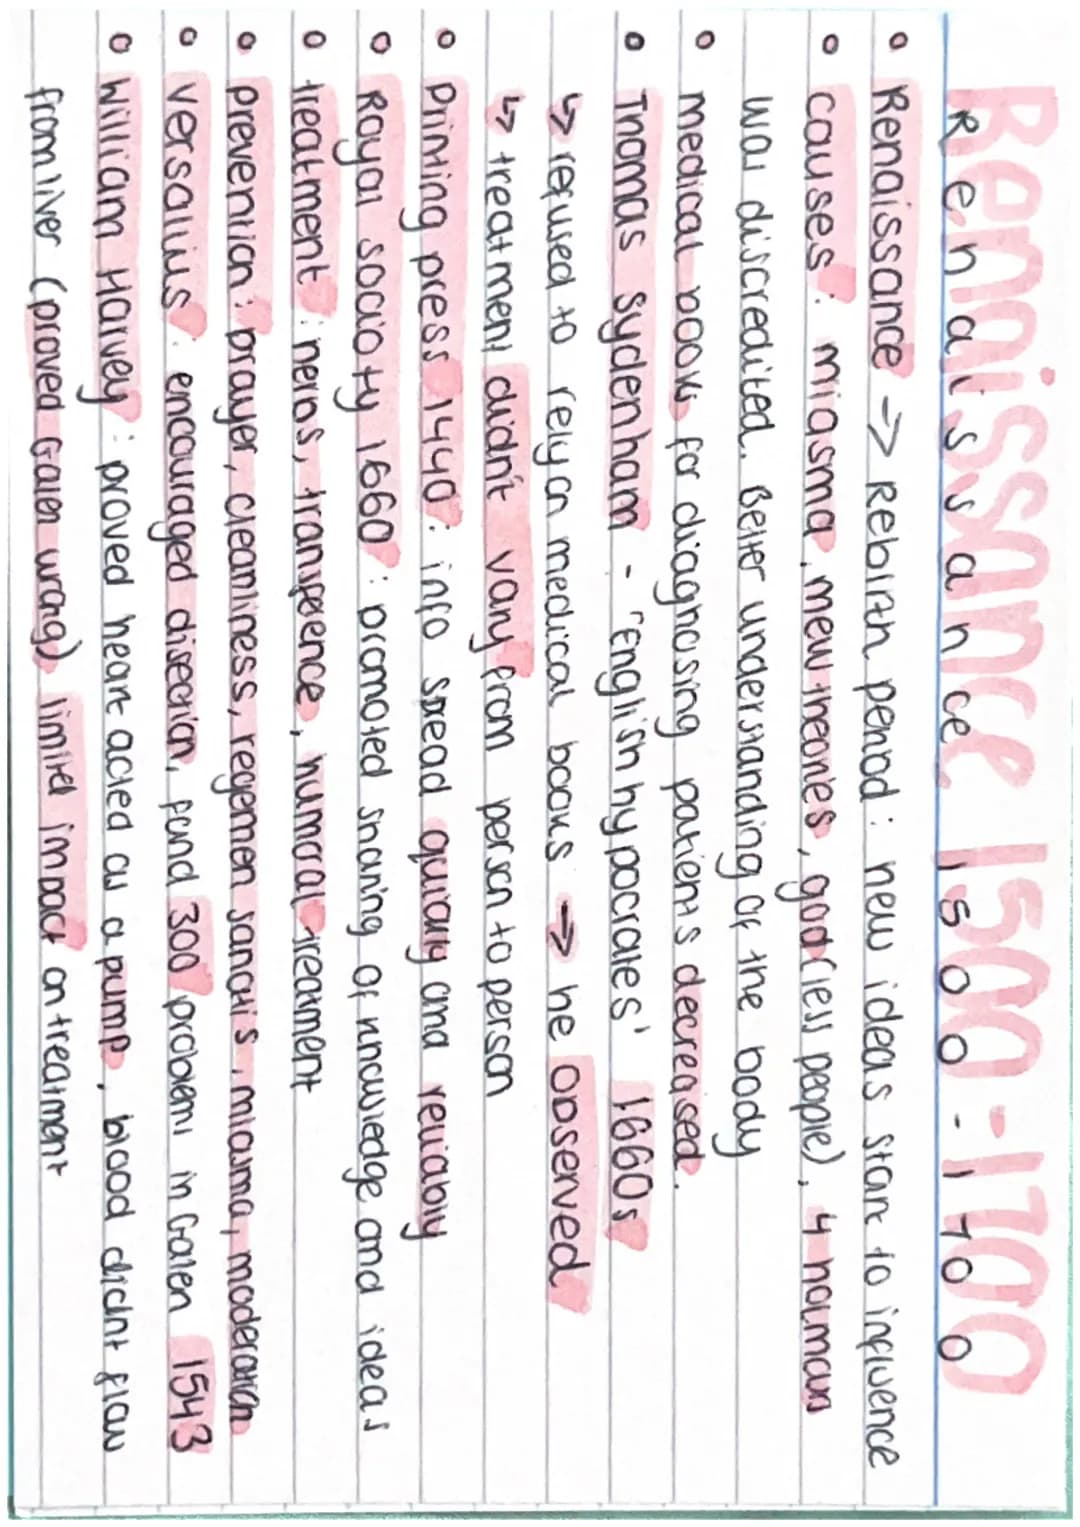 Renaissance 1500-1700
Renaissance 1500-1700
Renaissance → Rebirth period : new ideas start to influence
causes : miasma, new theories, god (less people), 4 houmours
was discredited. Better understanding of the body
medical books for diagnosing patients decreased.
Thomas Sydenham - 'English hypocrates' 1660s
↳ refused to rely on medical books → he observed
↳ treatment didn't vary from person to person
Printing press 1440 : info spread quickly and reliably
Royal society 1660 : promoted sharing of knowledge and ideas
treatment : herbs, transference, humoral treatment
Prevention : prayer, cleanliness, regemen sanctis, miasma, moderation
Versalius : encouraged disection, fond 300 problems in Galen 1543
William Harvey : proved heart acted as a pump, blood didnt flow
from liver (proved Galen wrong) limited impact on treatment